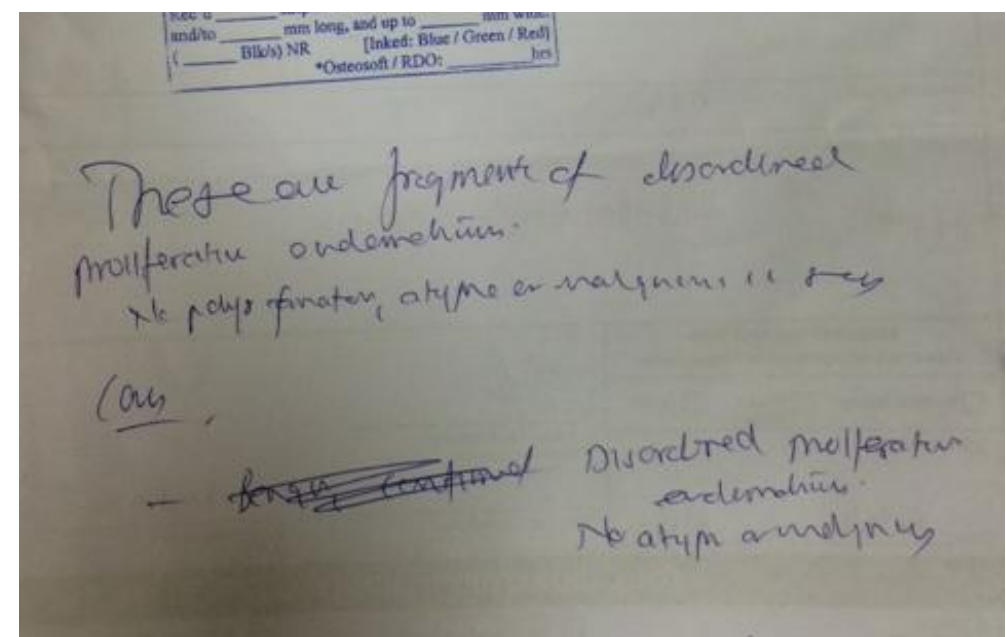 and/to ______ mm long, and up to ______ mm wide.
( ______ Blk/s) NR [Inked: Blue / Green / Red]
*Osteosoft / RDO: ______ hrs
These are fragments of disordered
proliferative endometrium.
No polyp formation, atypia or malignancy is seen
-
Disordered proliferative
endometrium.
No atypia or malignancy